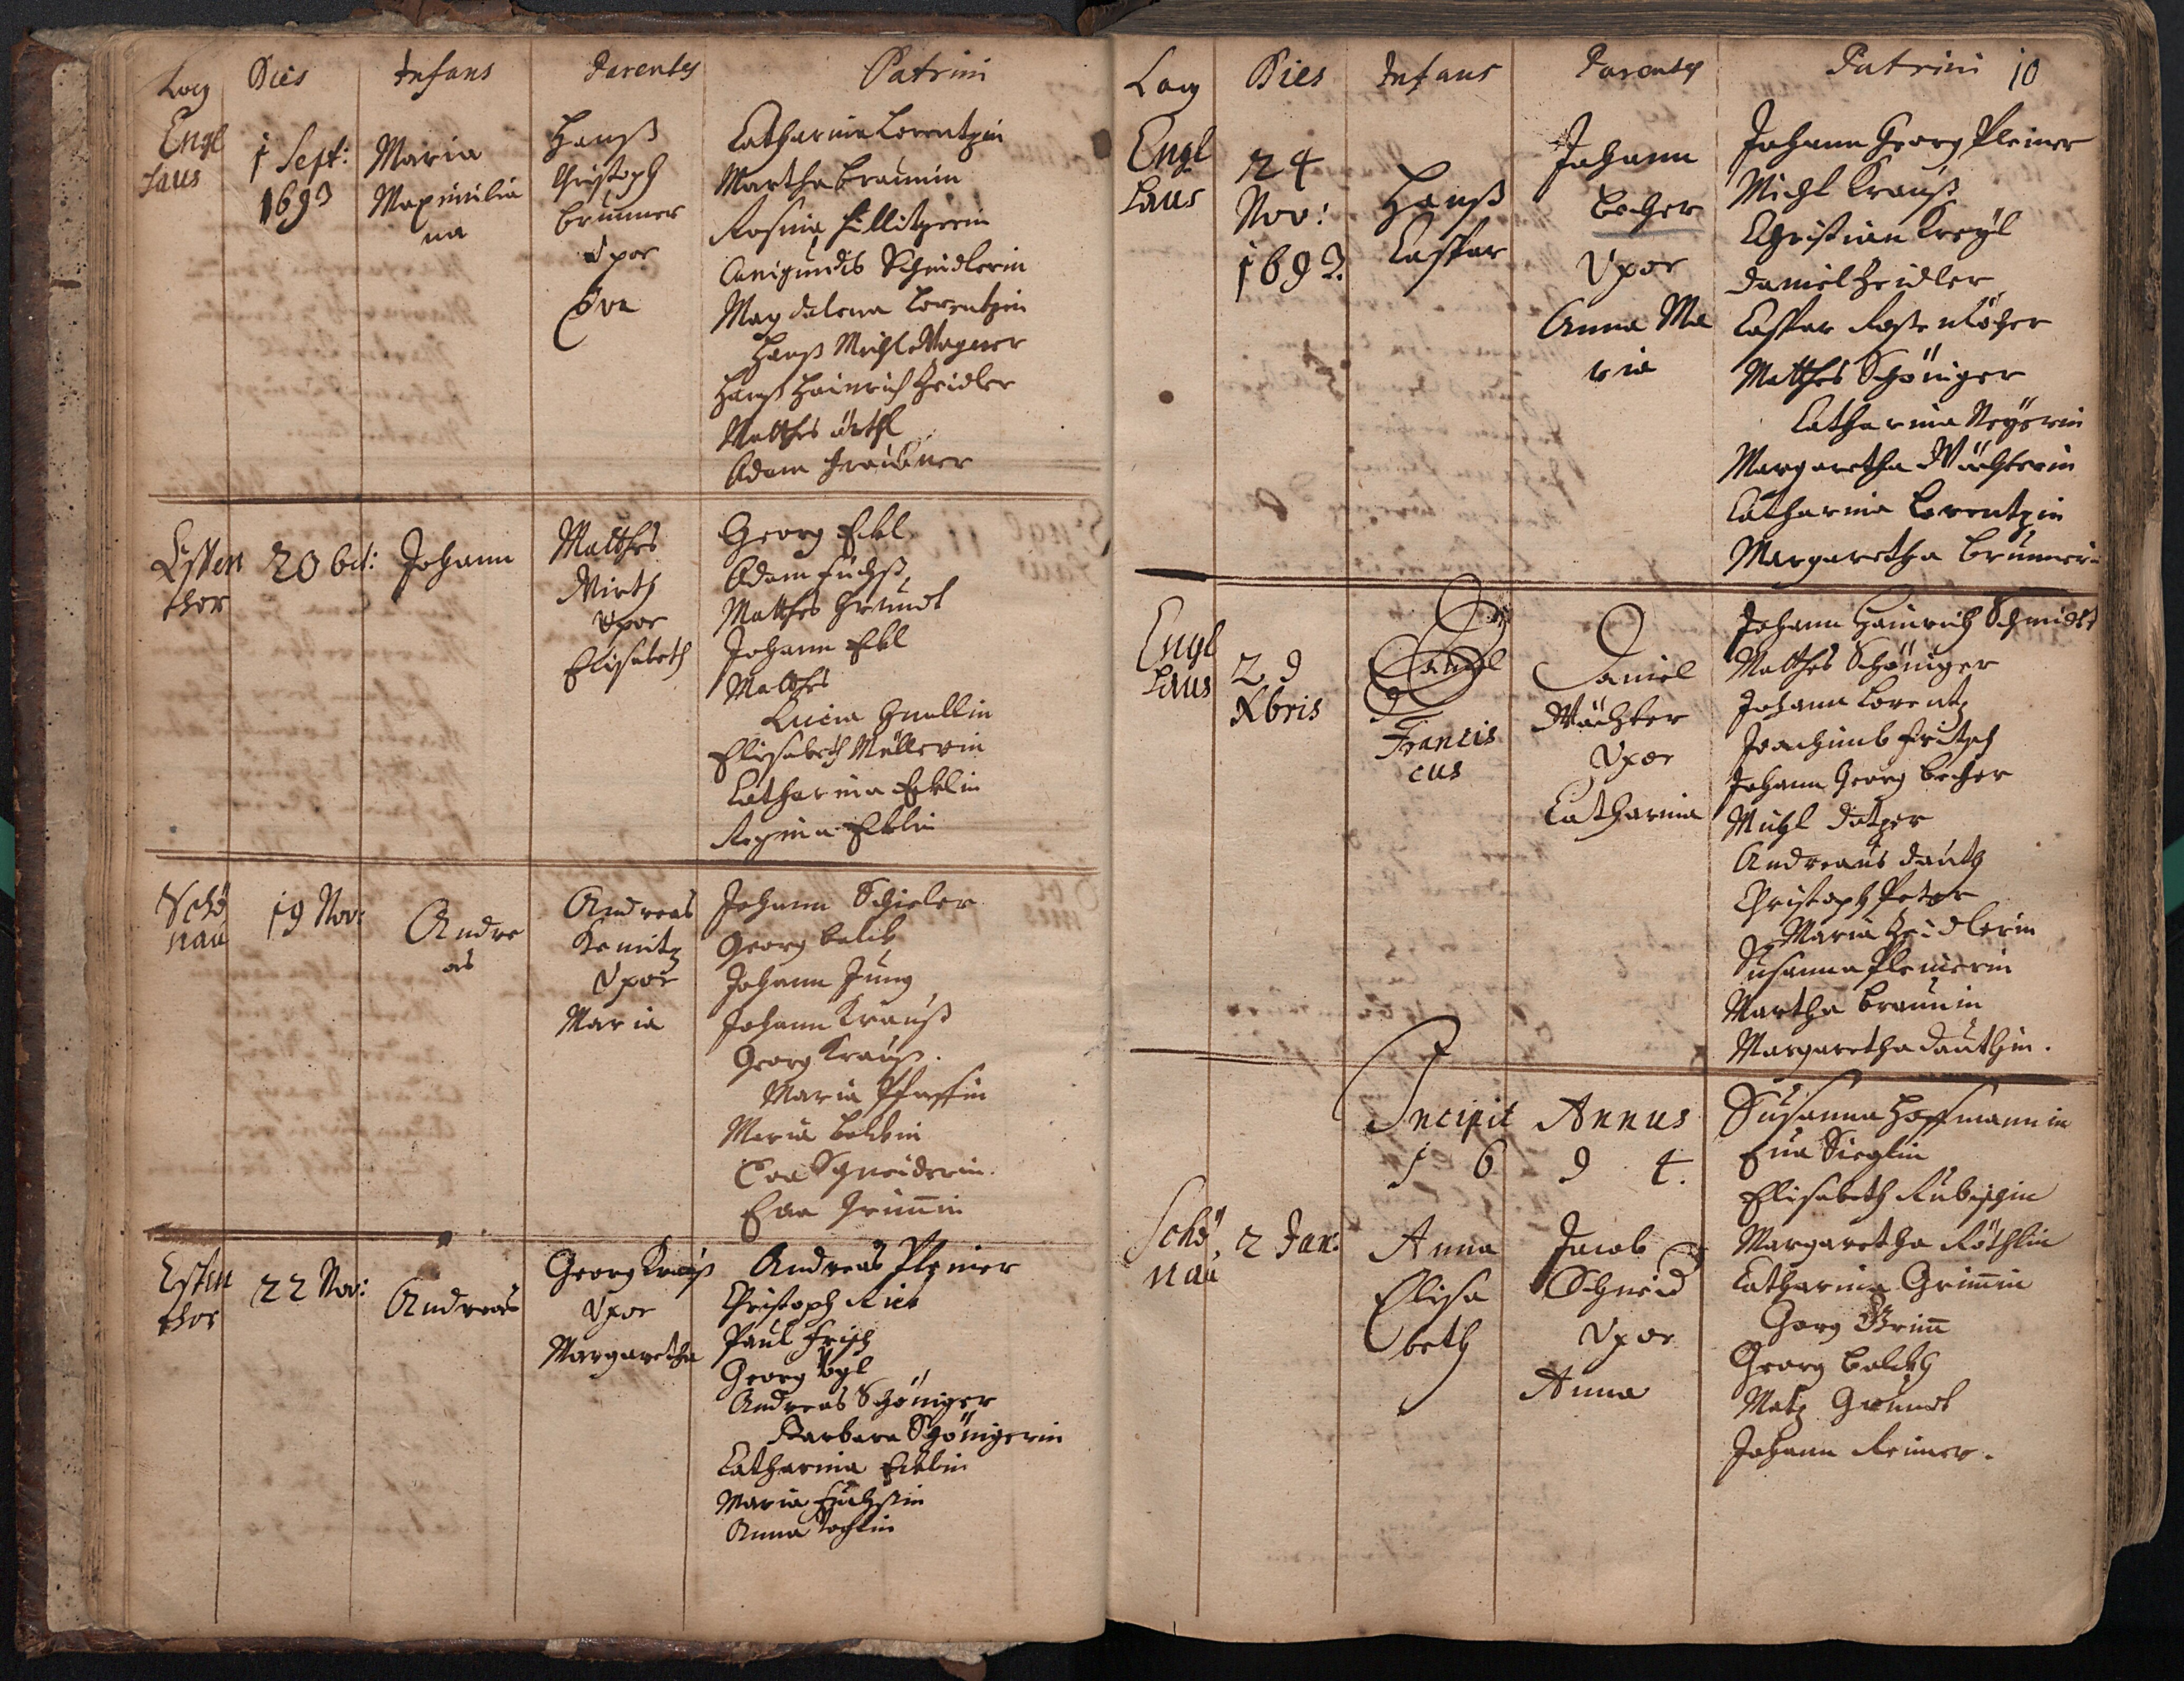 Log Dies Infans Parentes Patrini
Engl
haus
1 Sept:
1693
Maria
Maximilia
na
Hanß
Christoph
Brunner
Uxor
Eva
Catharina Lorentzin
Martha Braunin
Rosina
Cunigundis Schmidlerin
Magdalena Lorentzin
Hanß Michl Wagner
Hanß Heinrich Zeidler
Matthes
Adam
EsPen
thor
20 8bt:
Johann
Matthes
Wirth
Uxor
Elisabeth
Georg Ekl
Adam Fuchß
Matthes Grundt
Johann Ekl
Matthes
Lucia Gnallin
Elisabeth Müllerin
Catharina Eklin
Regina Eklin
Schö
nau
19 Nov:
Andre
as
Andreas
Kemitz
Uxor
Maria
Johann Schieler
Georg
Johann Jung
Johann Krauß
Georg Krauß.
Maria Pfaffin
Maria
Eva Schneiderin.
Eva Grim̅in
EsPen
thor
22 Nov:
Andreas
Georg Krauß
Uxor
Margaretha
Andreas Pleiner
Christoph
Paul Frisch
Georg Vogl
Andreas Schöniger
Barbara Schönigerin
Catharina Eklin
Maria Fuchsin
Anna
Log Dies Infans Parentes Patrini 10
Engl
haus
24
Nov:
1693.
Hanß
Caspar
Johann
Becher
Uxor
Anna Ma
ria
Johann Georg Pleiner
Michl Krauß
Christian Kreyl
Daniel Zeidler
Caspar
Matthes Schöniger
Catharina
Margaretha Wächterin
Catharina Lorentzin
Margaretha Brunnerin
Engl
haus
29
Xbris
Daniel
Francis
cus
Daniel
Wächter
Uxor
Catharina
Johann Hainrich Schmidt
Matthes Schöniger
Johann Lorentz
Joachimb Fritsch
Johann Georg Becher
Michl
Andreas
Christoph Peter
Maria Zeidlerin
Susanna Pleinerin
Martha Braunin
Margaretha
Incipit Annus
1 6 9 4.
Schö
nau
2 Jan:
Anna
Elisa
beth
Jacob
Schneid
Uxor
Anna
Susanna Hoffmannin
Eva Sieglin
Elisabeth
Margaretha
Catharina Grim̅in
Georg Grim̅
Georg
Matz Grundt
Johann Reiner.